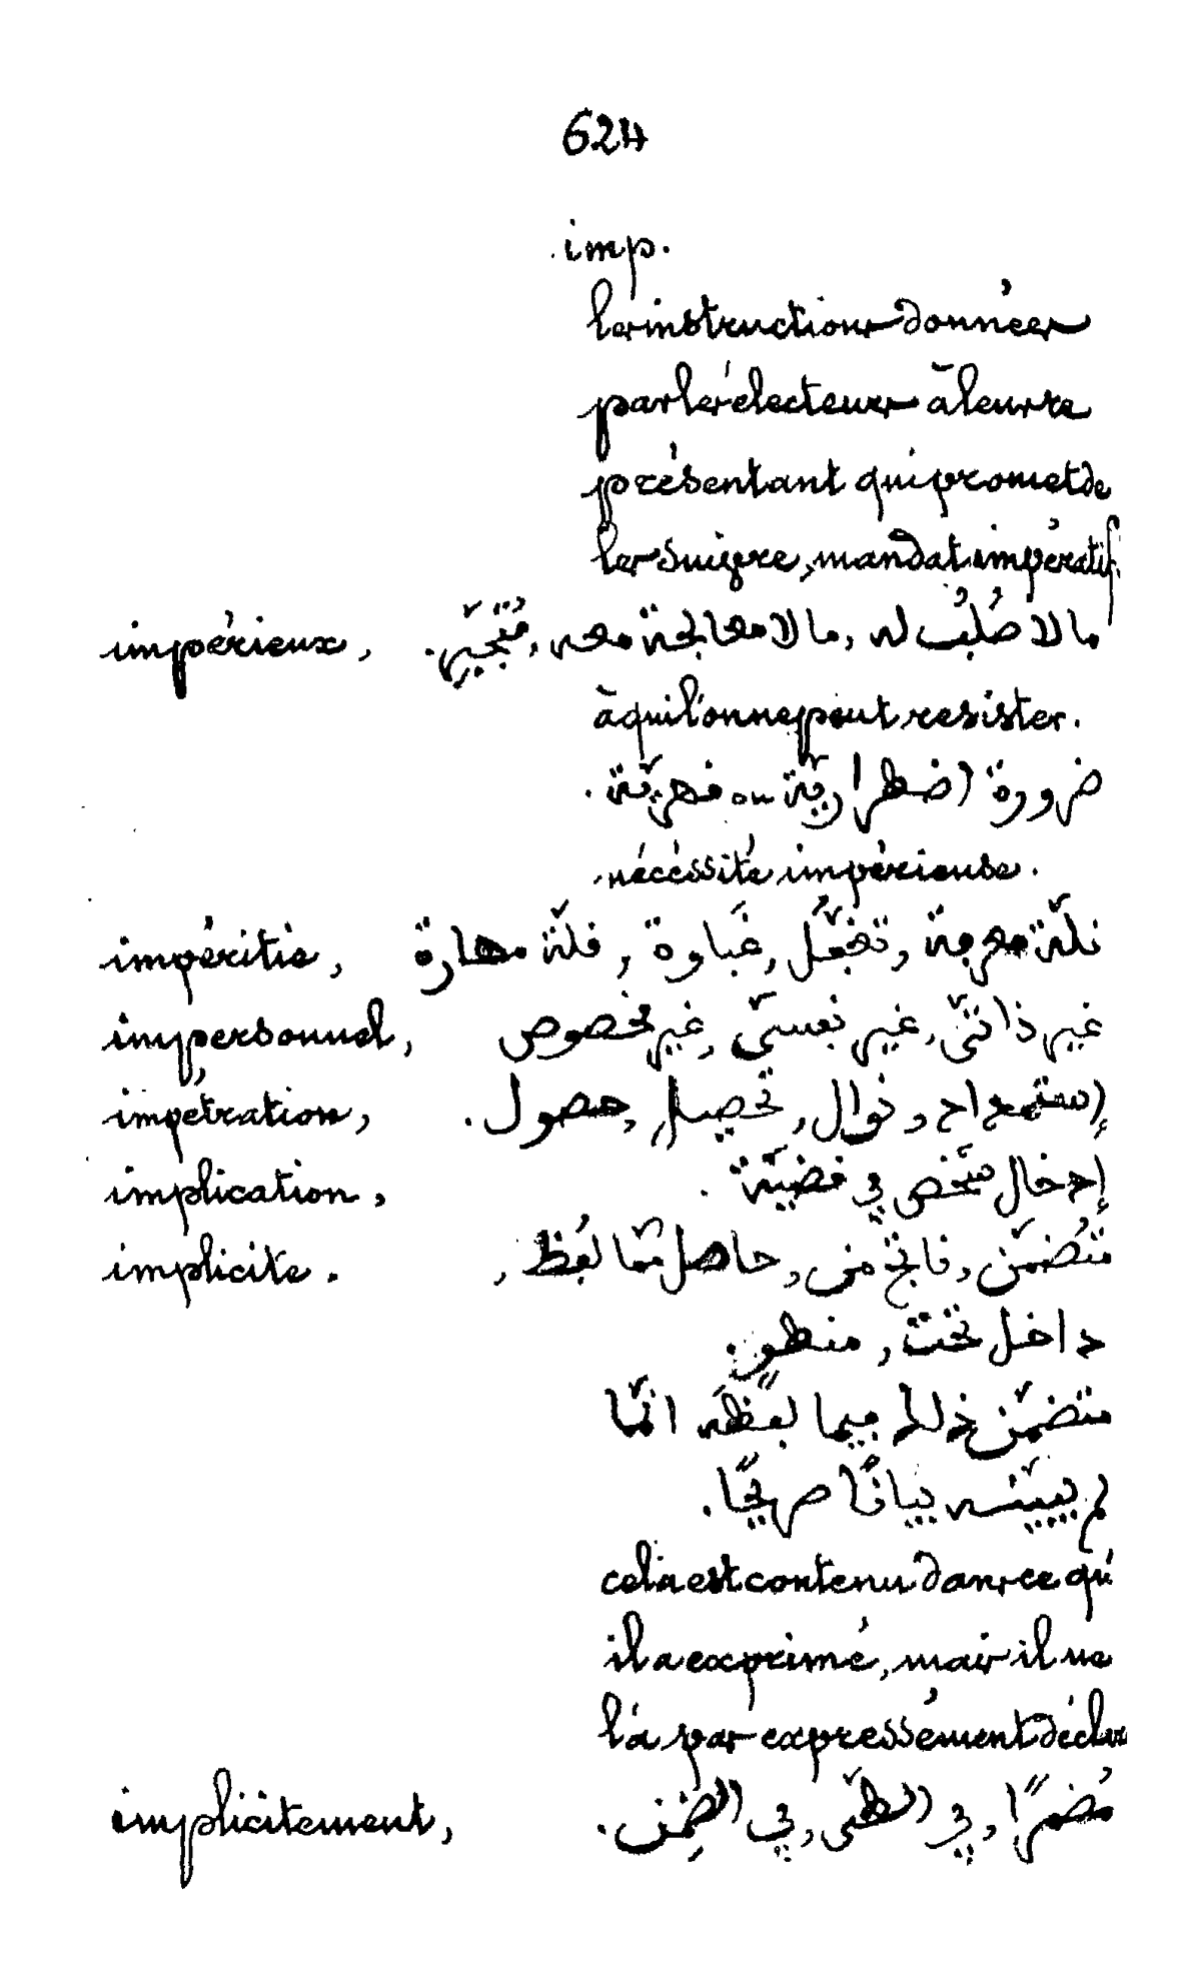 624
imp.
les instructions données
par les électeurs à leur re
présentant qui promet de
les suivre, mandat impératif.
impérieux, ما لا صُلِبُ له, ما لا معالجة معه, مُتَجَبِّر.
à qui l'on ne peut resister.
ضرورة اضطراريّة ou قهريّة.
nécéssité impérieuse.
impéritie, قلّة معرفة, تغفّل, غَباوة, قلّة مهارة
impersonnel, غير ذاتيّ, غير نفسيّ, غير مخصوص
impétration, إستمداد, نوال, تحصيل, حصول.
implication, إدخال شخص في قضيّة.
implicite. متضمّن, ناتج من, حاصل ممّا لفظ,
داخل تحت, منطوٍ.
متضمّن ذلك فيما لفظه انّما
لم يبيّنه بيانًا صريحًا.
cela est contenu dans ce qu'
il a exprimé, mais il ne
l'a pas expressément déclaré
implicitement, مُضمرًا, في الطيّ, في الضِمن.